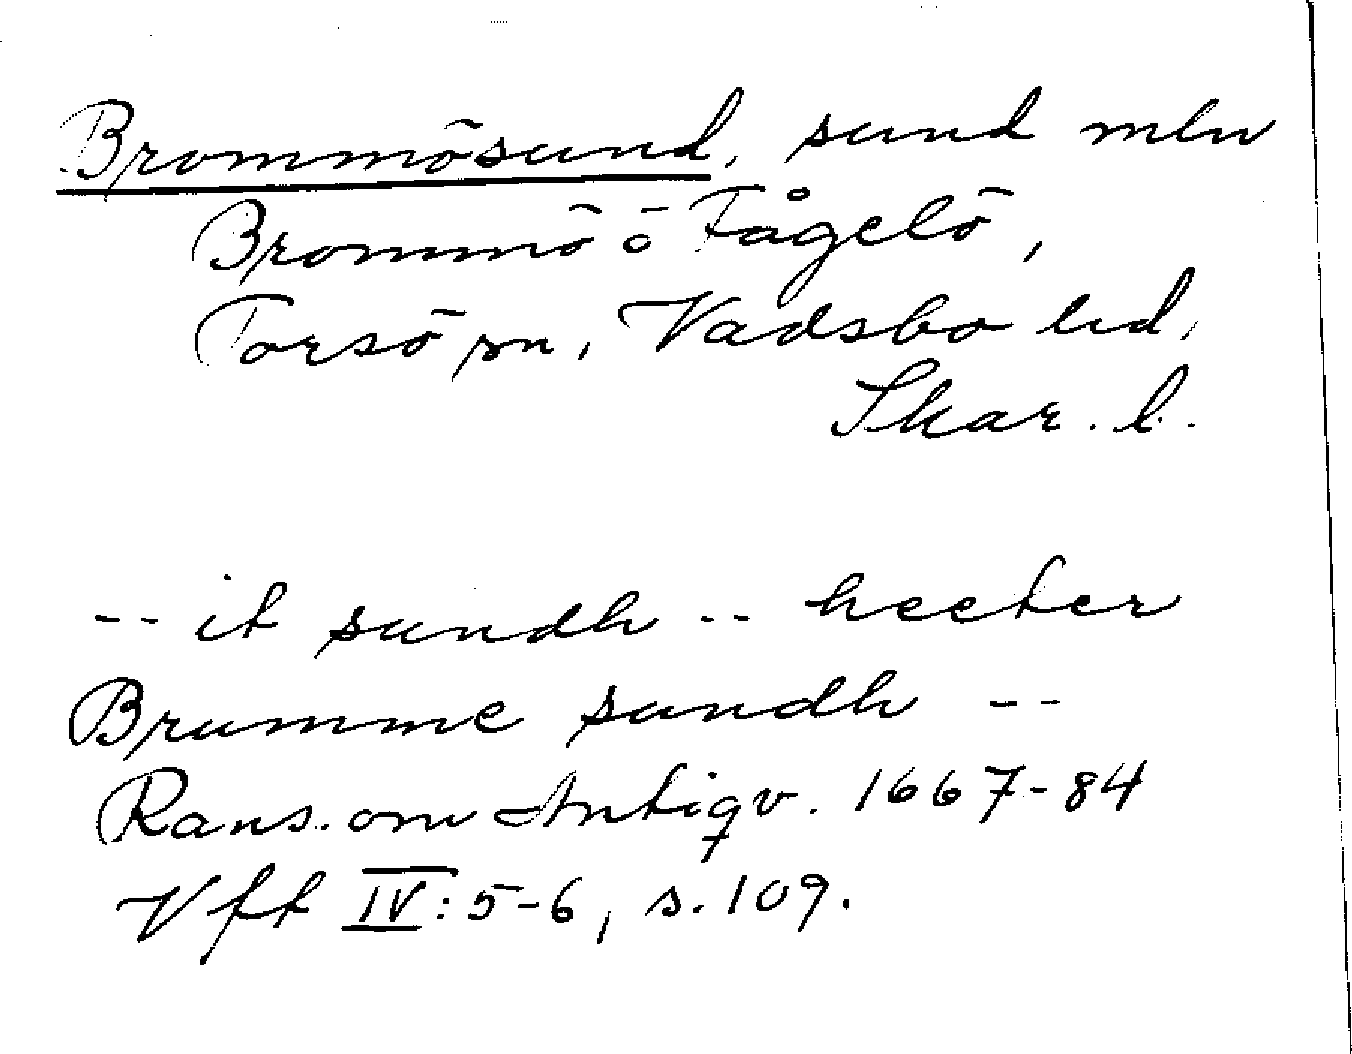 Brommösund, sund mln
Brommö ö Fågelö,
Torsö sn, Vadsbo hd,
Skar. l.
-- it sundh -- heeter
Brumme sundh --
Rans. om Antiqv. 1667-84
Vft IV:5-6, s.109.